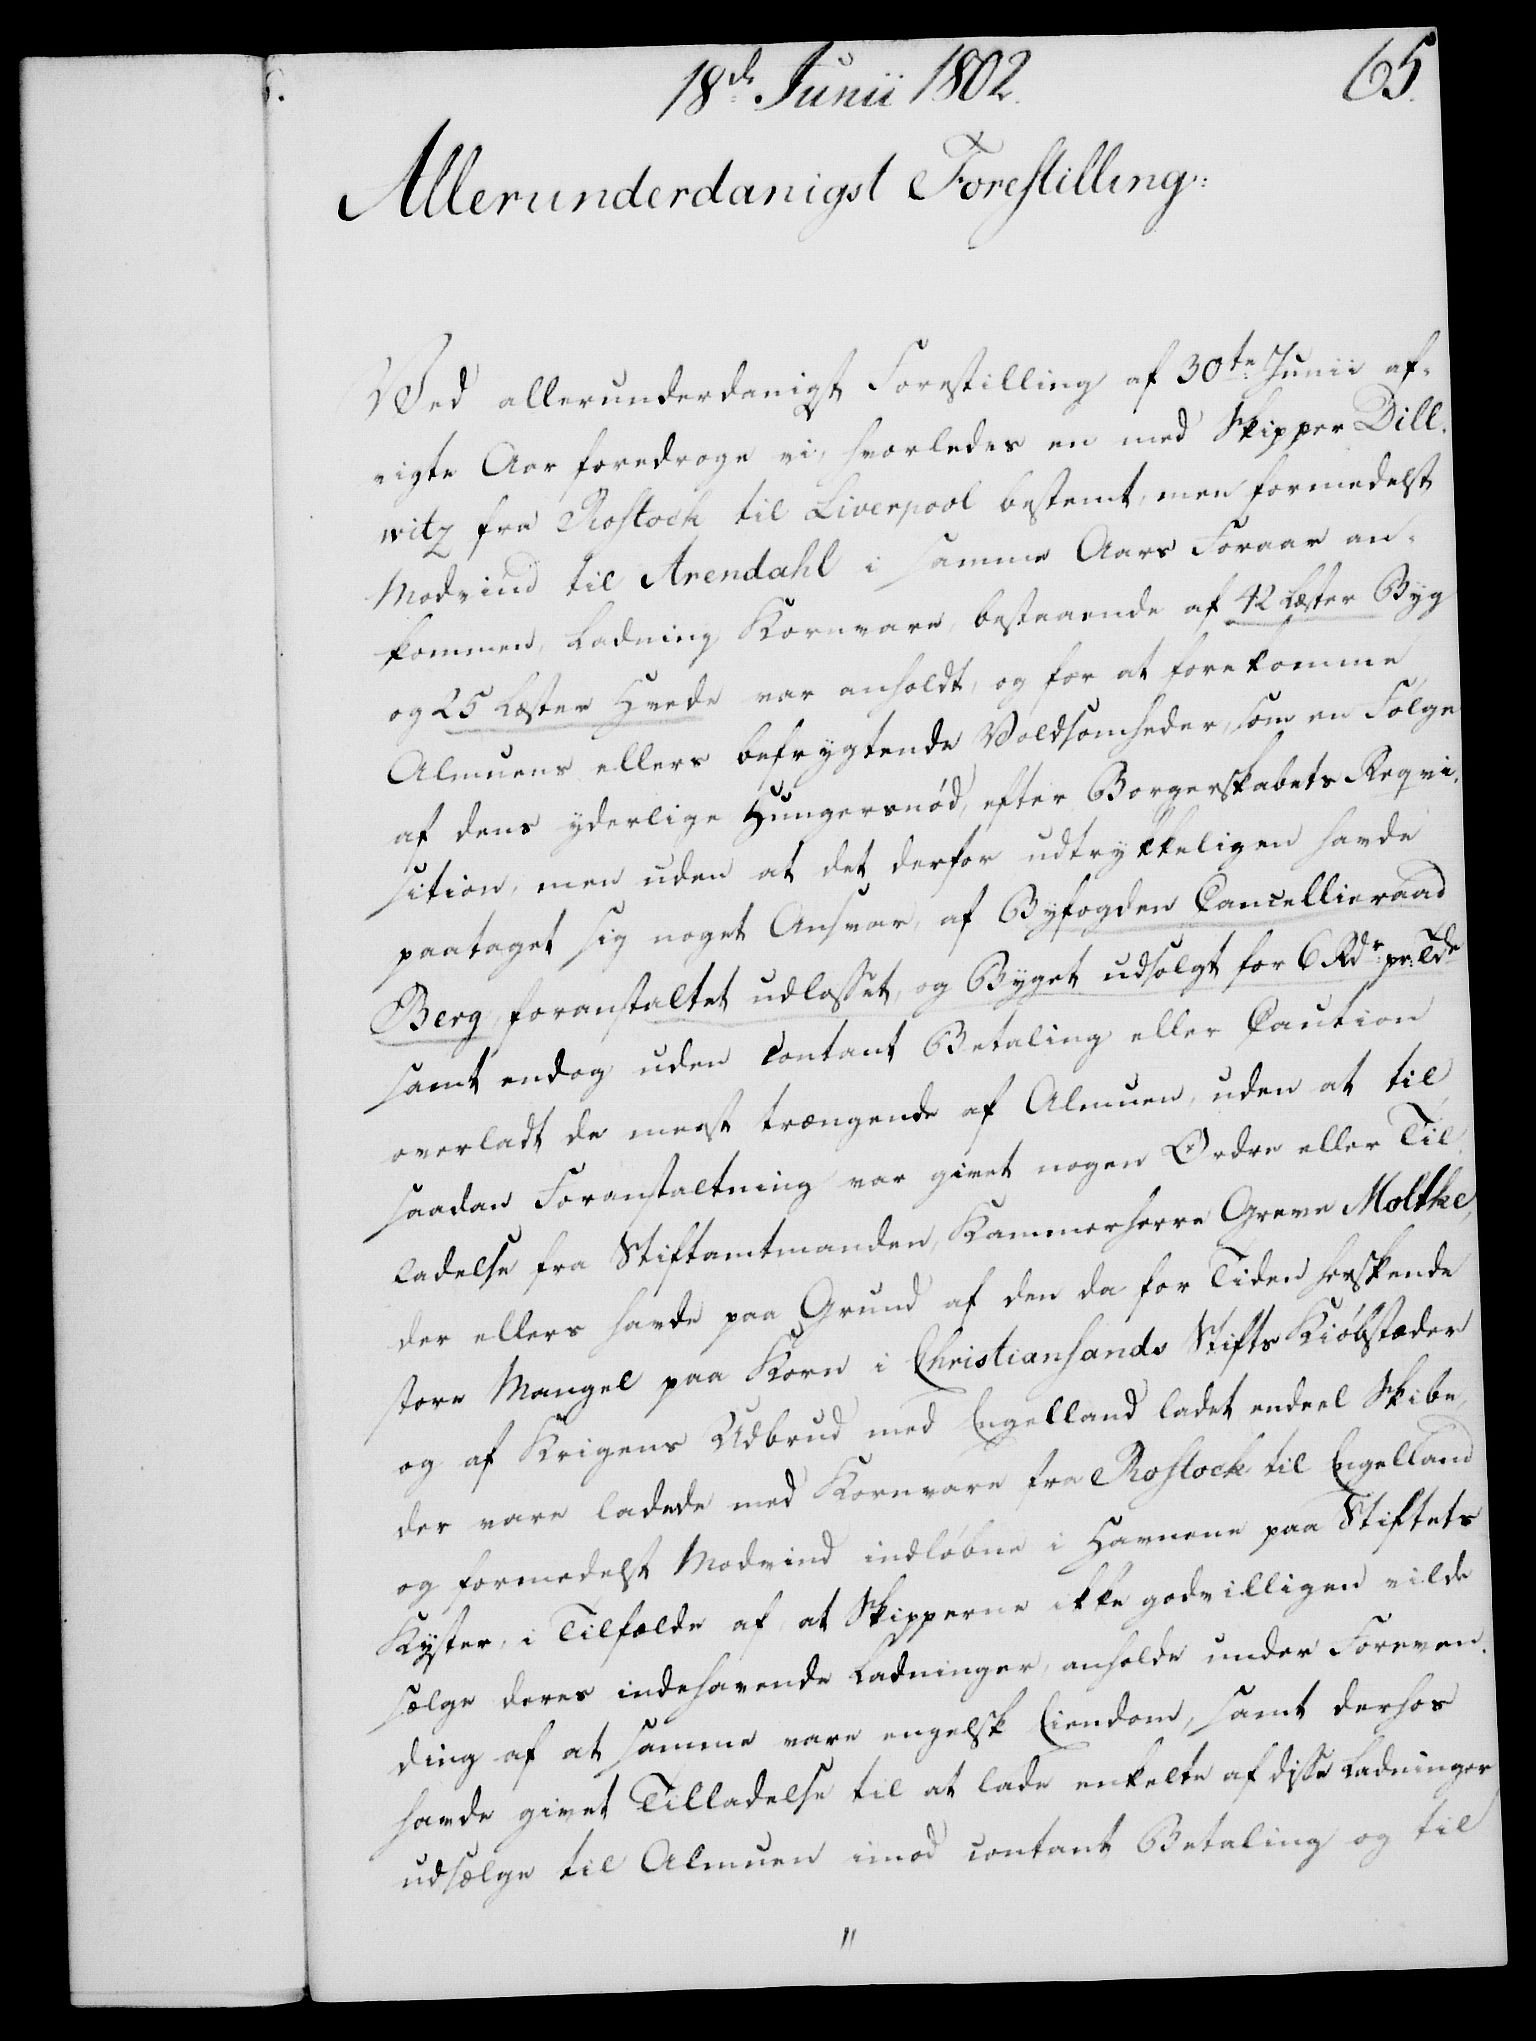 18de Junii 1802.
65.
Allerunderdanigst Forestilling:
Ved allerunderdanigst Forestilling af 30te Junii af-
vigte Aar foredroge vi, hvorledes en med Skipper Dill-
witz fra Rostock til Liverpool bestemt, men formedelst
Modvind til Arendahl i samme Aars Foraar an-
kommen, Ladning Kornvare, bestaaende af 42 Læster Byg
og 25 Læster Hvede var anholdt, og for at forekomme
Almuens ellers befrygtende Voldsomheder, som en Følge
af dens yderlige Hungersnød, efter Borgerskabets Reqvi-
sition, men uden at det derfor udtrykkeligen havde
paataget sig noget Ansvar, af Byfogden Cancellieraad
Berg foranstaltet udlosset, og Byget udsolgt for 6 Rdr. pr: Tde
samt endog uden contant Betaling eller Caution
overladt de meest trængende af Almuen, uden at til
saadan Foranstaltning var givet nogen Ordre eller Til-
ladelse fra Stiftamtmanden, Kammerherre Greve Moltke,
der ellers havde paa Grund af den da for Tiden herskende
store Mangel paa Korn i Christiansands Stifts Kiöbstæder
og af Krigens Udbrud med Engelland ladet endeel Skibe,
der vare ladede med Kornvare fra Rostock til Engelland
og formedelst Modvind indløbne i Havnene paa Stiftets
Kyster, i Tilfælde af, at Skipperne ikke godvilligen vilde
sælge deres indehavende Ladninger, anholde under Foreven-
ding af at samme vare engelsk Eiendom, samt derhos
havde givet Tilladelse til at lade enkelte af disse Ladninger
udsælge til Almuen imod contant Betaling og til
"